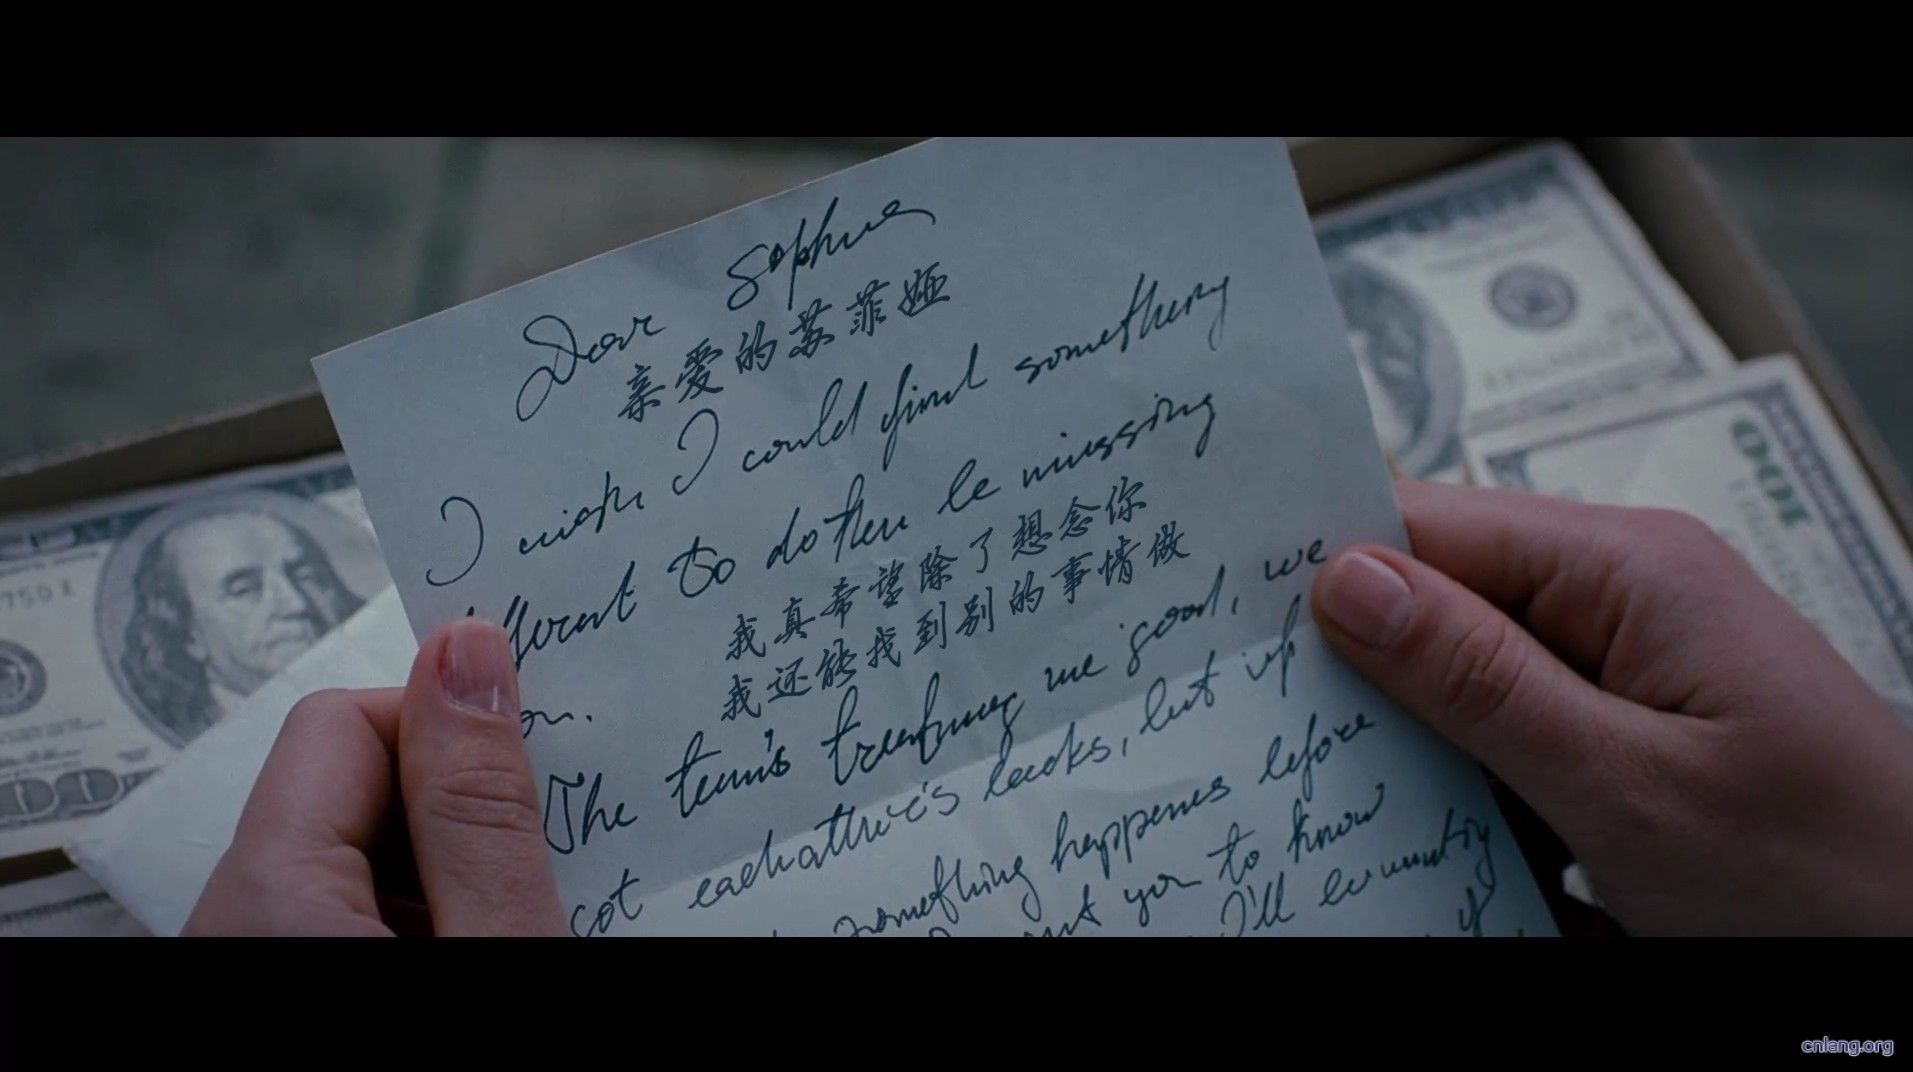 Dear Sophia
亲爱的苏菲娅
I wish I could find something
to do then be missing
我真希望除了想念你
我还能找到别的事情做
The team's treating me good, we
got eachother's backs, but if
something happenes before
you to know
I'll
if
100
cnlang.org